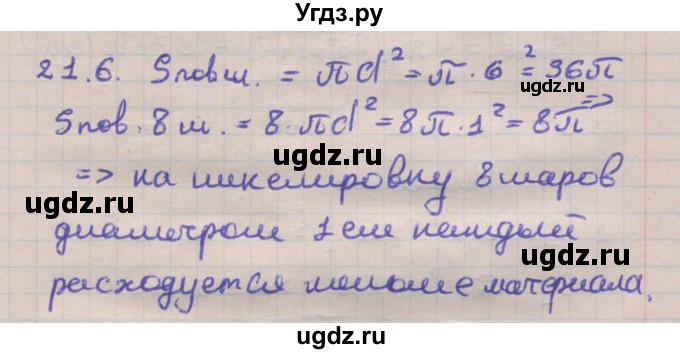 Угдз.ру
21.6. Sпов.ш. = πd² = π · 6² = 36π
Sпов. 8 ш. = 8 · πd² = 8π · 1² = 8π =>
ugdz.ru
ugdz.ru
=> на никелировку 8 шаров
ugdz.ru
диаметром 1 см каждый
ugdz.ru
расходуется меньше материала.
ugdz.ru
ugdz.ru